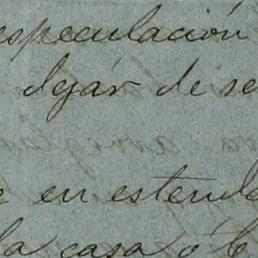 especulación
dejar de se
e en estende
la casa ó C